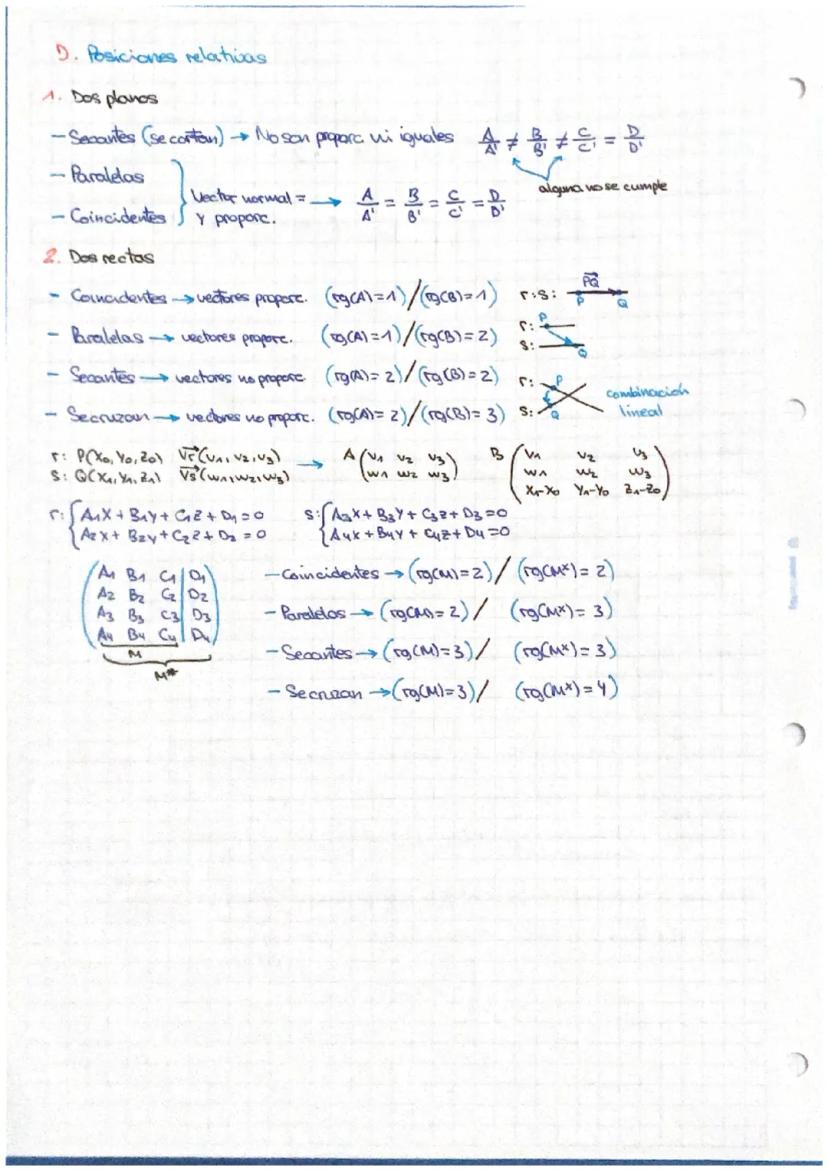 D. Posiciones relativas
1. Dos planos
- Secantes (se cortan) → No son proporc ni iguales A/A' ≠ B/B' ≠ C/C' = D/D'
alguna no se cumple
- Paralelas
- Coincidentes } Vector normal = y proporc. → A/A' = B/B' = C/C' = D/D'
2. Dos rectas
- Coincidentes → vectores proporc. (rg(A)=1)/(rg(B)=1) r=s: PQ P Q
- Paralelas → vectores proporc. (rg(A)=1)/(rg(B)=2) r: P s: Q
- Secantes → vectores no proporc (rg(A)=2)/(rg(B)=2) r: P
- Se cruzan → vectores no proporc. (rg(A)=2)/(rg(B)=3) s: Q combinación lineal
r: P(x0, y0, z0) Vr(v1, v2, v3) → A (v1 v2 v3 B (v1 v2 v3
s: Q(x1, y1, z1) Vs(w1, w2, w3) w1 w2 w3) w1 w2 w3
x1-x0 y1-y0 z1-z0)
r: { A1x + B1y + C1z + D1 = 0 s: { A3x + B3y + C3z + D3 = 0
A2x + B2y + C2z + D2 = 0 A4x + B4y + C4z + D4 = 0
(A1 B1 C1 | D1 - Coincidentes → (rg(M)=2)/ (rg(M*)=2)
A2 B2 C2 | D2
A3 B3 C3 | D3 - Paralelos → (rg(M)=2)/ (rg(M*)=3)
A4 B4 C4 | D4) - Secantes → (rg(M)=3)/ (rg(M*)=3)
M
M* - Se cruzan → (rg(M)=3)/ (rg(M*)=4)